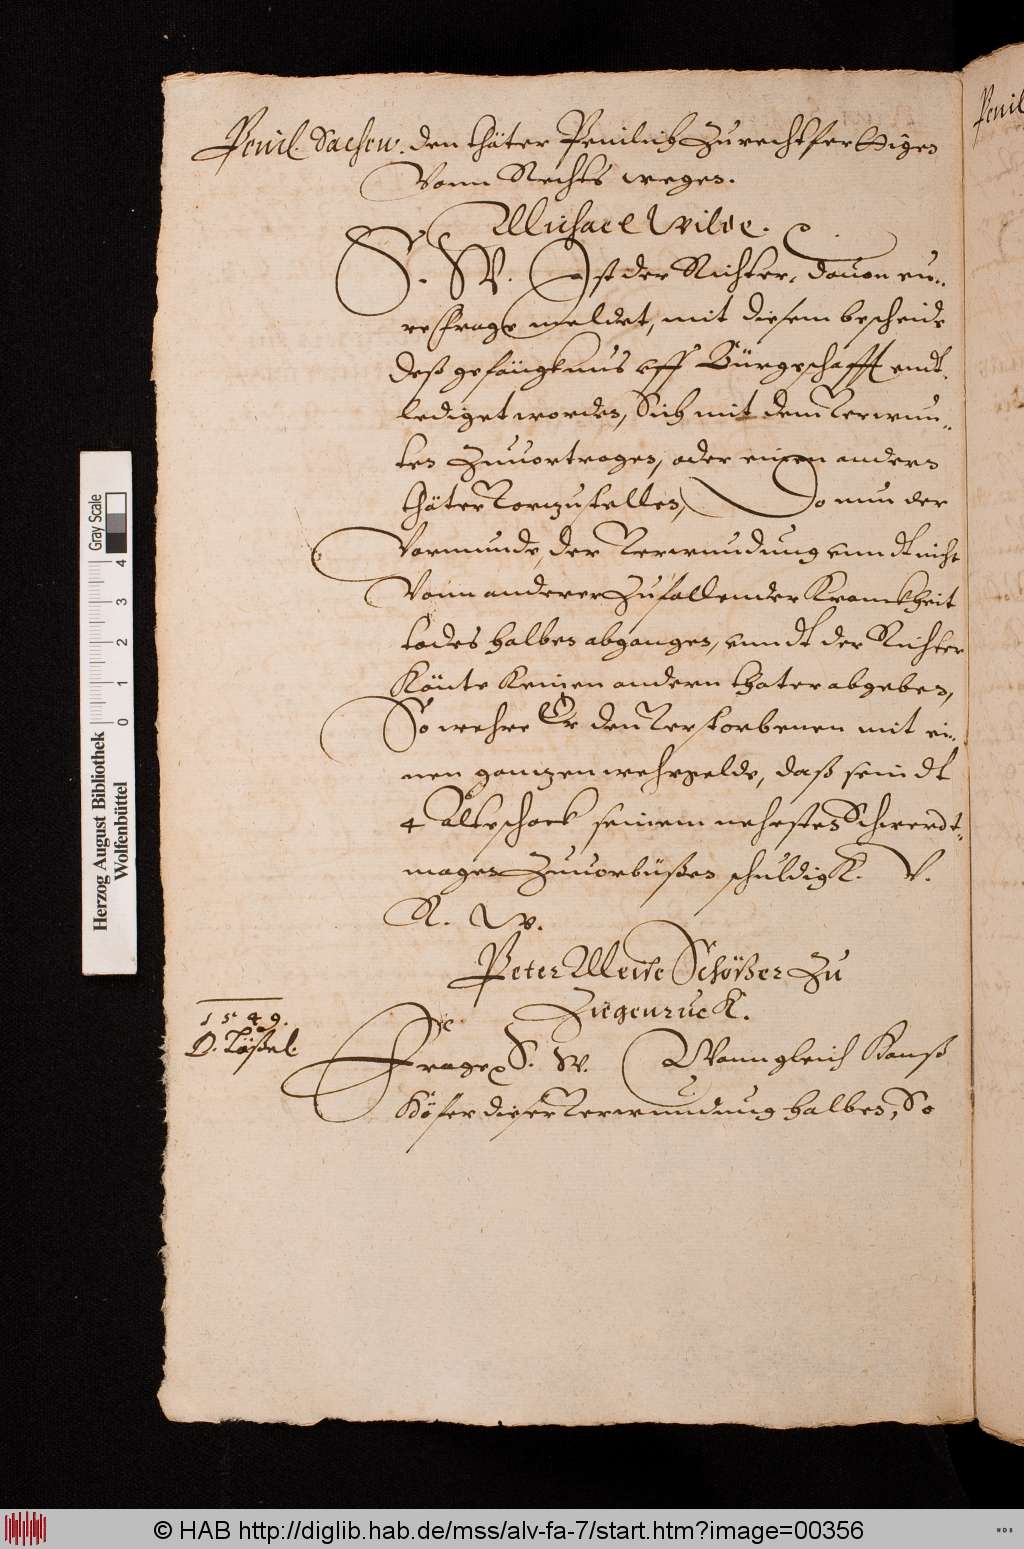 Peinl. Sachen. den thäter Peinlich zu rechtfertigen
Vonn Rechts wegen.
Michael Wilde.
S. W. Ist der Richter, dauon eu-
re frage meldet, mit diesem bescheide
deß gefängknus uff Bürgeschafft endt-
lediget worden, Sich mit dem Verwun-
ten zuuortragen, oder einen andern
thäter Vorzustellen, Do nun der
Vormunde, der Verwundung unndt nicht
Vonn anderer zufallender Kranckheit
todes halben abgangen, unndt der Richter
Könte Keinen andern thäter abgeben,
So wehre Er den Verstorbenen mit ei-
nen gantzen wehrgelde, daß seindt
4 Alteschock seinem nehesten Schwerdt-
magen zuuorbüßen schuldigk. V.
R. W.
Peter Meise Schößer zu
Ziegenruck.
1549.
D. Lößel.
Frage S. W. Wann gleich Hanß
Höfer dieser Verwundung halben, So
Herzog August Bibliothek
Wolfenbüttel
0 1 2 3 4
Gray Scale
© HAB http://diglib.hab.de/mss/alv-fa-7/start.htm?image=00356